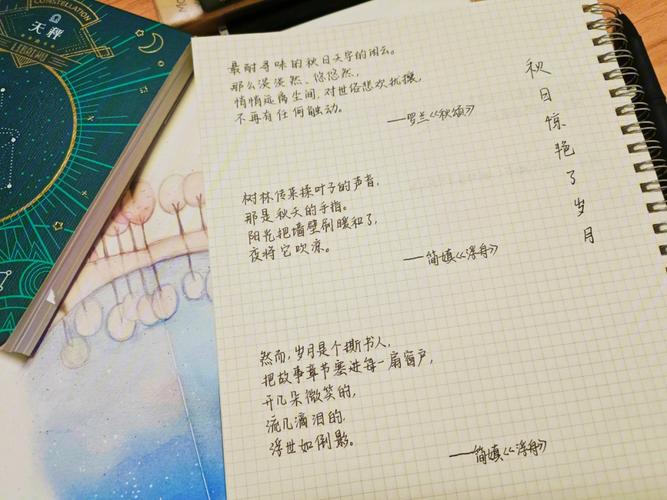 CONSTELLATION
天秤
秋日惊艳了岁月
最耐寻味的秋日天宇的闲云。
那么漫漫然、悠悠然,
悄悄远离尘间,对世俗悲欢扰攘,
不再有任何触动。
——罗兰《秋颂》
树林传来揉叶子的声音,
那是秋天的手指。
阳光把墙壁刷暖和了,
夜将它吹凉。
——简媜《浮舟》
然而,岁月是个撕书人,
把故事章节塞进每一扇窗户,
开几朵微笑的,
流几滴泪的.
浮世如倒影。
——简媜《浮舟》